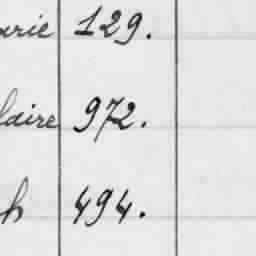 arie 129.
laire 972.
h 494.